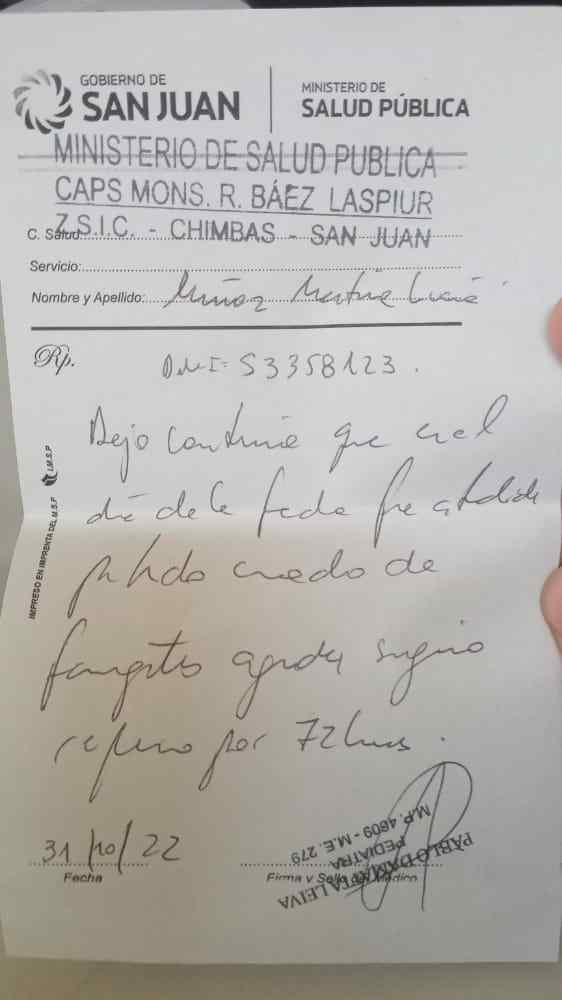 GOBIERNO DE
SAN JUAN
MINISTERIO DE
SALUD PÚBLICA
MINISTERIO DE SALUD PUBLICA
CAPS MONS. R. BÁEZ LASPIUR
Z.S.I.C. - CHIMBAS - SAN JUAN
C. Salud:
Servicio:
Nombre y Apellido: Muñoz
Rp.
D.N.I: 53358123.
Dejo que en el
día de la fecha fue atendida
cuadro de
faringitis aguda sugiero
reposo por 72 hrs.
IMPRESO EN IMPRENTA DEL M.S.P I.M.S.P
31/10/22
Fecha
Firma y Sello del Médico
PABLO LEIVA
PEDIATRA
M.P. 4609 - M.E. 279